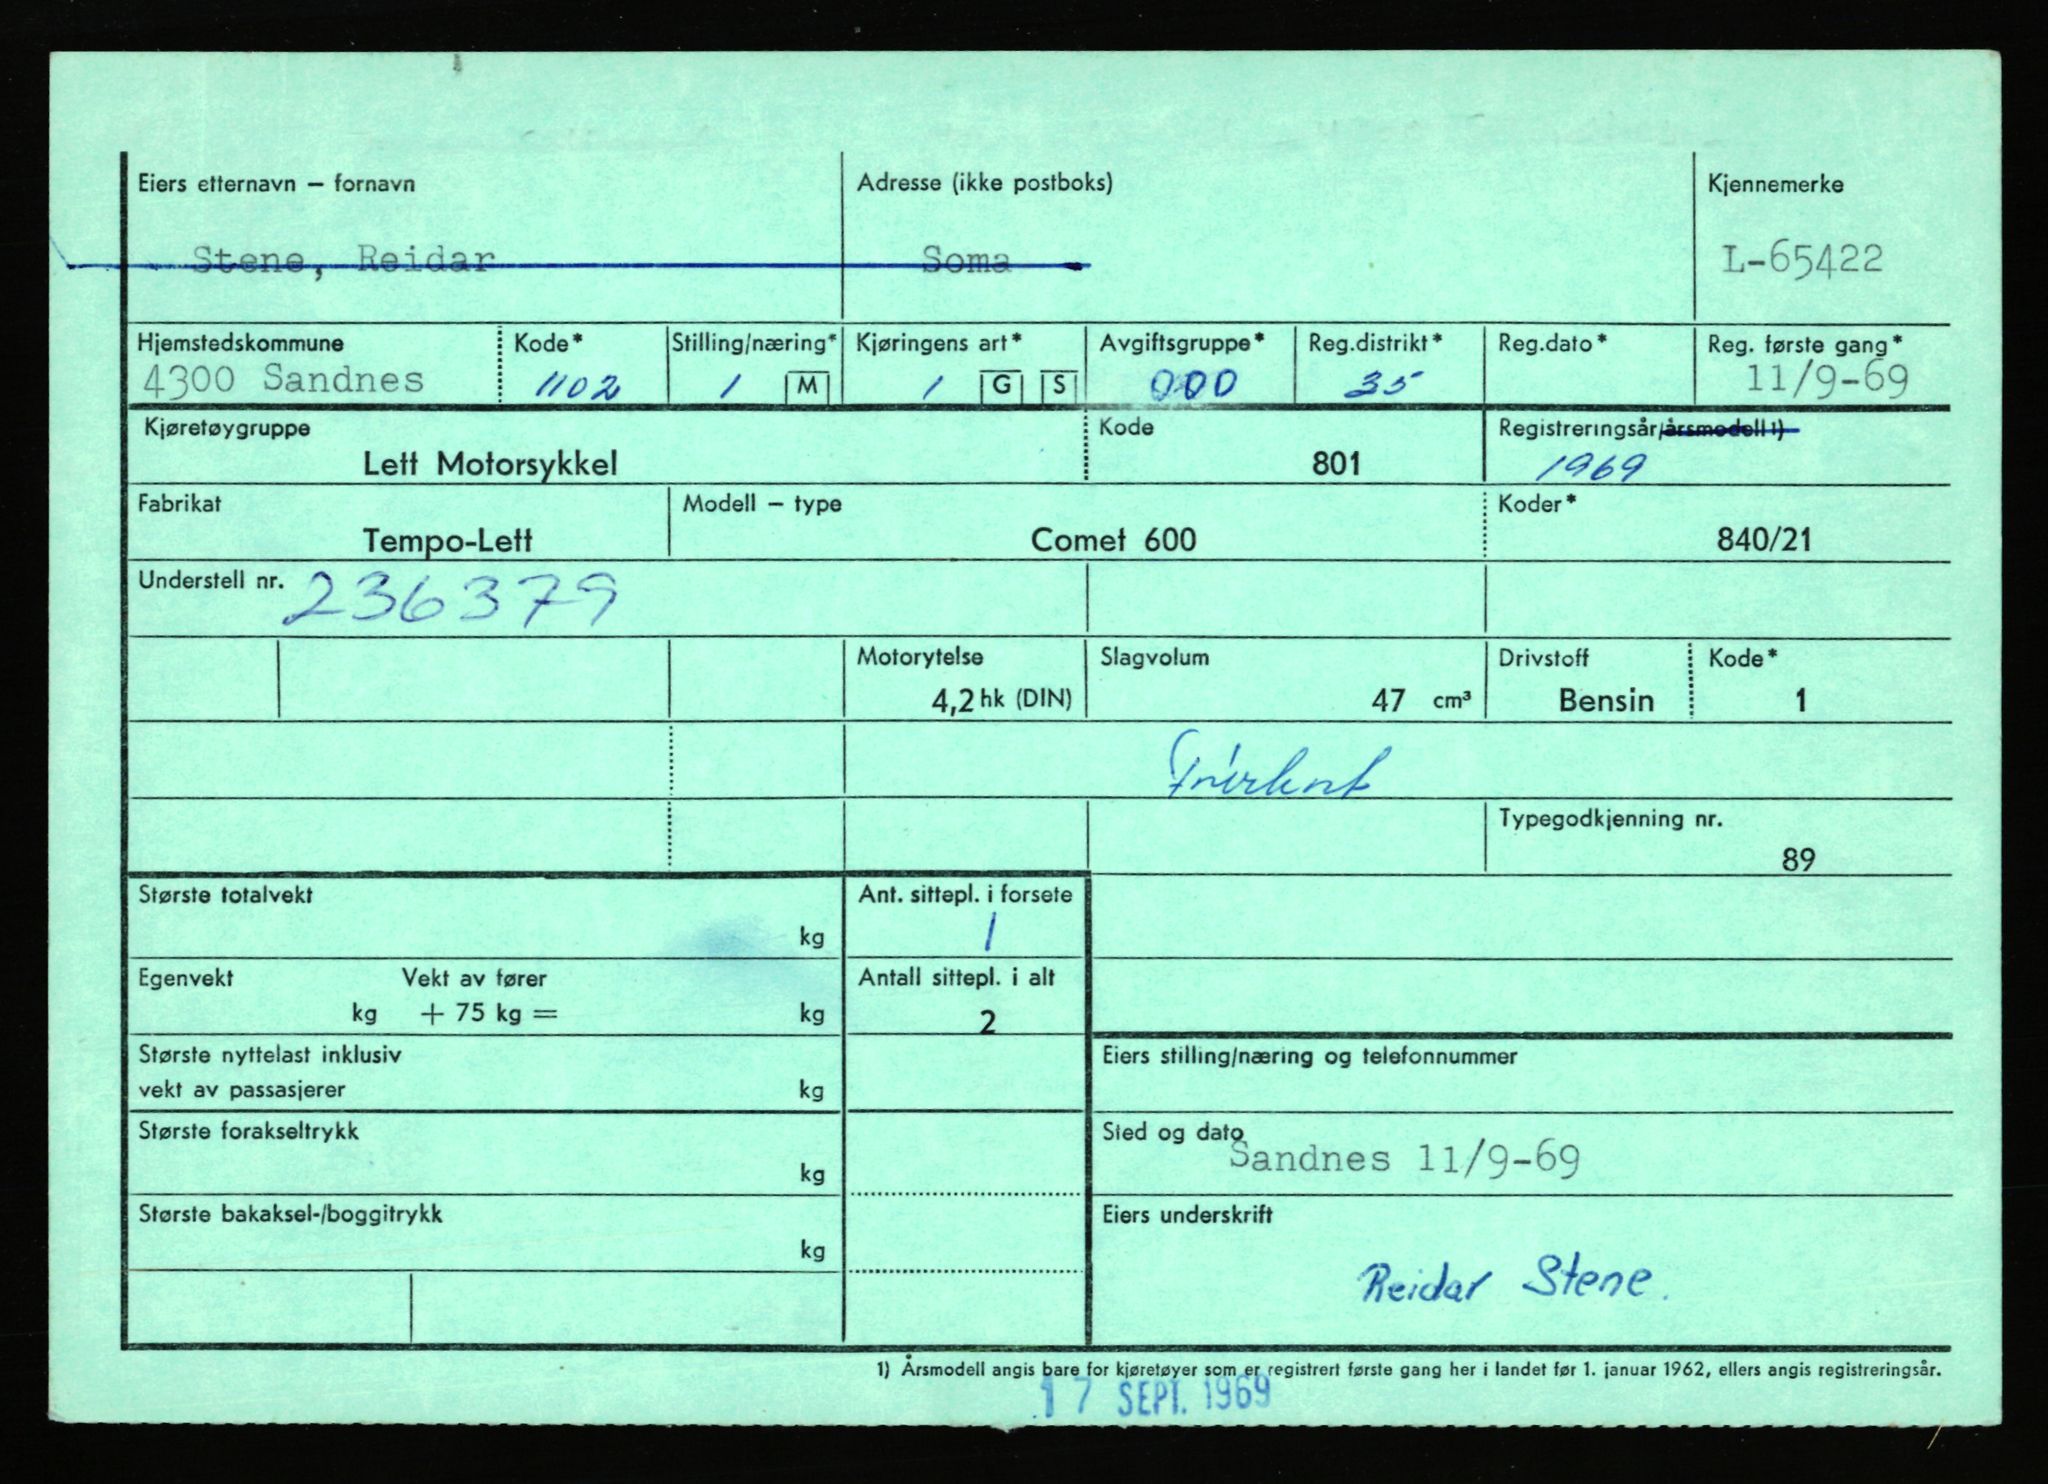 Eiers etternavn – fornavn Adresse (ikke postboks) Kjennemerke
Stene, Reidar Soma L-65422
Hjemstedskommune Kode* Stilling/næring* Kjøringens art* Avgiftsgruppe* Reg.distrikt* Reg.dato* Reg. første gang*
4300 Sandnes 1102 1 M 1 G S 000 35 11/9-69
Kjøretøygruppe Kode Registreringsår/årsmodell 1)
Lett Motorsykkel 801 1969
Fabrikat Modell – type Koder*
Tempo-Lett Comet 600 840/21
Understell nr. 236379
Motorytelse Slagvolum Drivstoff Kode*
4,2 hk (DIN) 47 cm³ Bensin 1
Typegodkjenning nr.
89
Største totalvekt Ant. sittepl. i forsete
kg 1
Egenvekt Vekt av fører Antall sittepl. i alt
kg + 75 kg = kg 2
Største nyttelast inklusiv Eiers stilling/næring og telefonnummer
vekt av passasjerer kg
Største forakseltrykk Sted og dato
kg Sandnes 11/9-69
Største bakaksel-/boggitrykk Eiers underskrift
kg
Reidar Stene.
1) Årsmodell angis bare for kjøretøyer som er registrert første gang her i landet før 1. januar 1962, ellers angis registreringsår.
17 SEPT. 1969